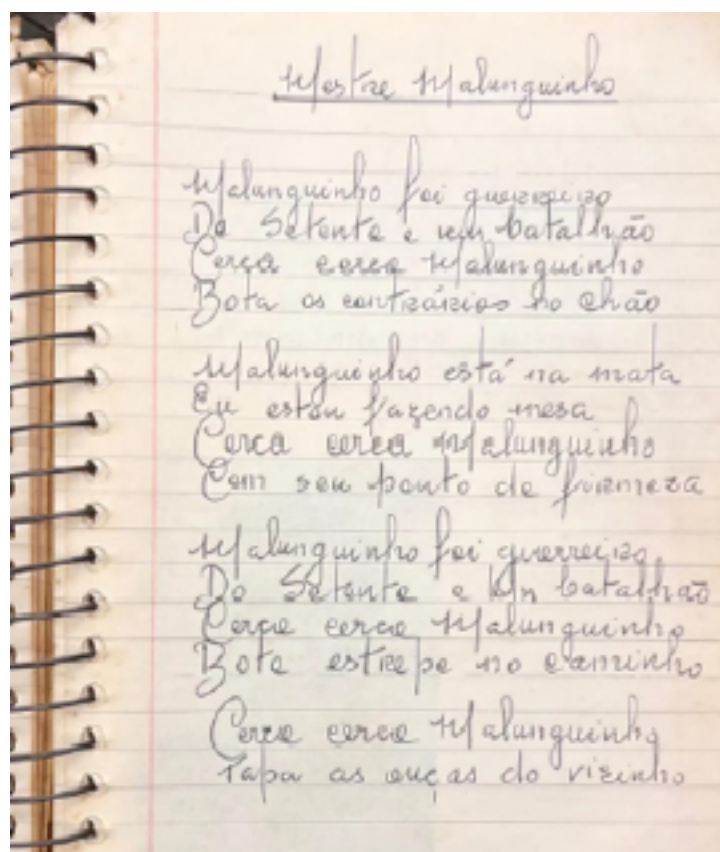 Mestre Malunguinho
Malunguinho foi guerreiro
De Setenta e um batalhão
Cerca cerca Malunguinho
Bota os contrários no chão
Malunguinho está na mata
Eu estou fazendo mesa
Cerca cerca Malunguinho
Com seu ponto de firmeza
Malunguinho foi guerreiro
De Setenta e Um batalhão
Cerca cerca Malunguinho
Bota estrepe no caminho
Cerca cerca Malunguinho
Tapa as ouças do vizinho